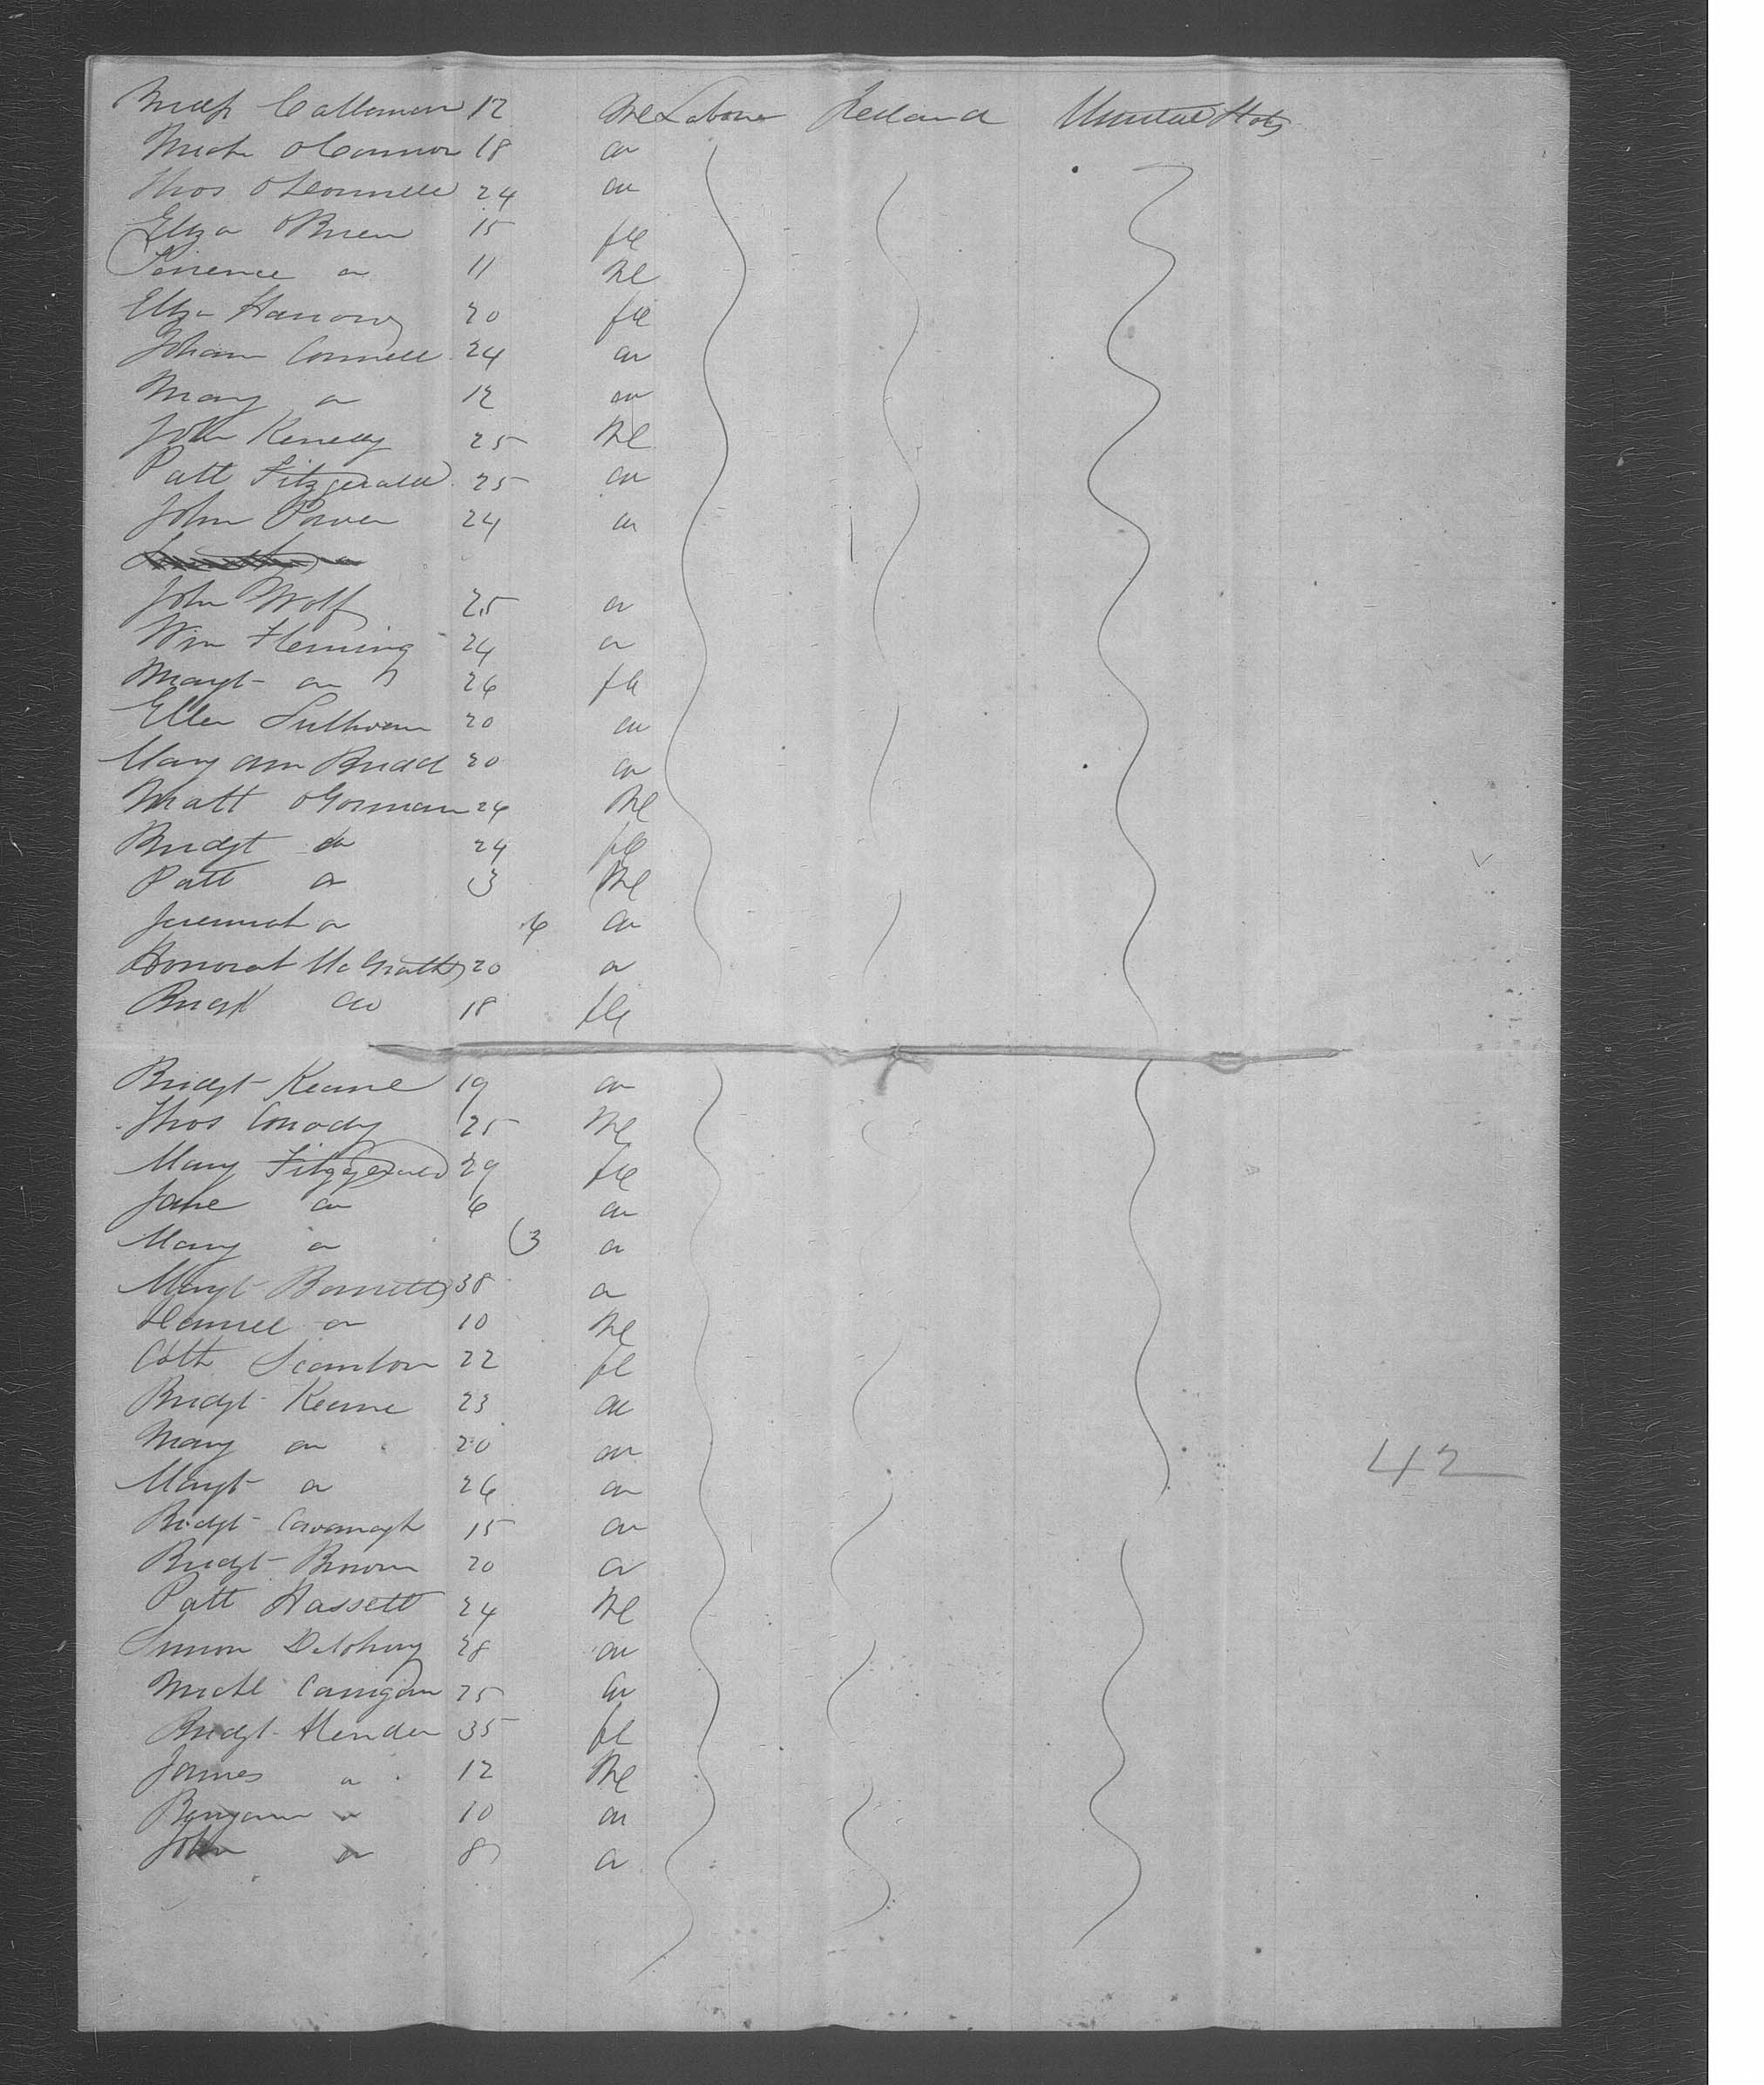 Callanan 12 Me Labourer Ireland United States
Mich OConnor 18 do
Thos OConnell 24 do
Eliza OBrien 15 fle
Terrence do 11 Me
Eliza 20 fle
Johan Connell 24 do
Mary do 12 do
John Kenedy 25 Me
Patt Fitzgerald 25 do
John Power 24 do
John Wolf 25 do
Wm Fleming 24 do
Margt do 26 fle
Ellen Sullivan 20 do
Mary Ann 20 do
Matt OGorman 26 Me
Bridgt do 24 fle
Patt do 3 Me
Jeremiah do 6 do
Honorah McGrath 20 do
Bridgt do 18 fle
Bridgt Keane 19 do
Thos 25 Me
Mary Fitzgerald 29 fle
Jane do 6 do
Mary do 3 do
Margt 38 do
Daniel do 10 Me
Cath Scanlon 22 fle
Bridgt Keane 23 do
Mary do 20 do
Margt do 26 do
42
Bridgt Cavanagh 15 do
Bridgt Brown 20 do
Patt Hassett 24 Me
Simon 28 do
Michl Carrigan 25 do
Bridgt 35 fle
James do 12 Me
Benjamin do 10 do
John do 8 do